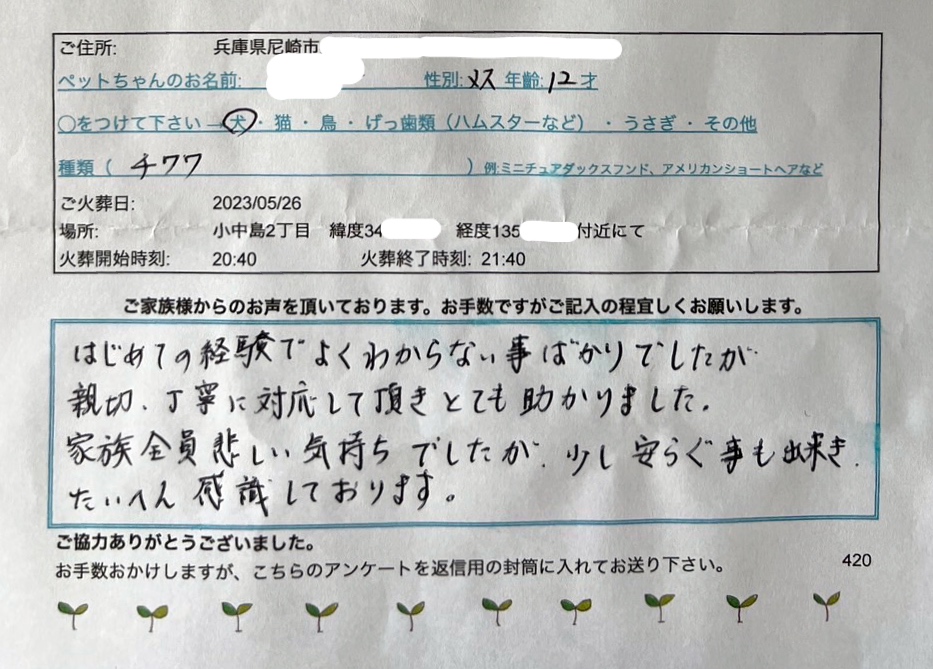 ご住所: 兵庫県尼崎市
ペットちゃんのお名前: 性別:メス 年齢:12才
○をつけて下さい→犬・猫・鳥・げっ歯類(ハムスターなど)・うさぎ・その他
種類( チワワ )例:ミニチュアダックスフンド、アメリカンショートヘアなど
ご火葬日: 2023/05/26
場所: 小中島2丁目 緯度34 経度135 付近にて
火葬開始時刻: 20:40 火葬終了時刻: 21:40
ご家族様からのお声を頂いております。お手数ですがご記入の程宜しくお願いします。
はじめての経験でよくわからない事ばかりでしたが
親切、丁寧に対応して頂きとても助かりました。
家族全員悲しい気持ちでしたが、少し安らぐ事も出来き、
たいへん感識しております。
ご協力ありがとうございました。
お手数おかけしますが、こちらのアンケートを返信用の封筒に入れてお送り下さい。
420